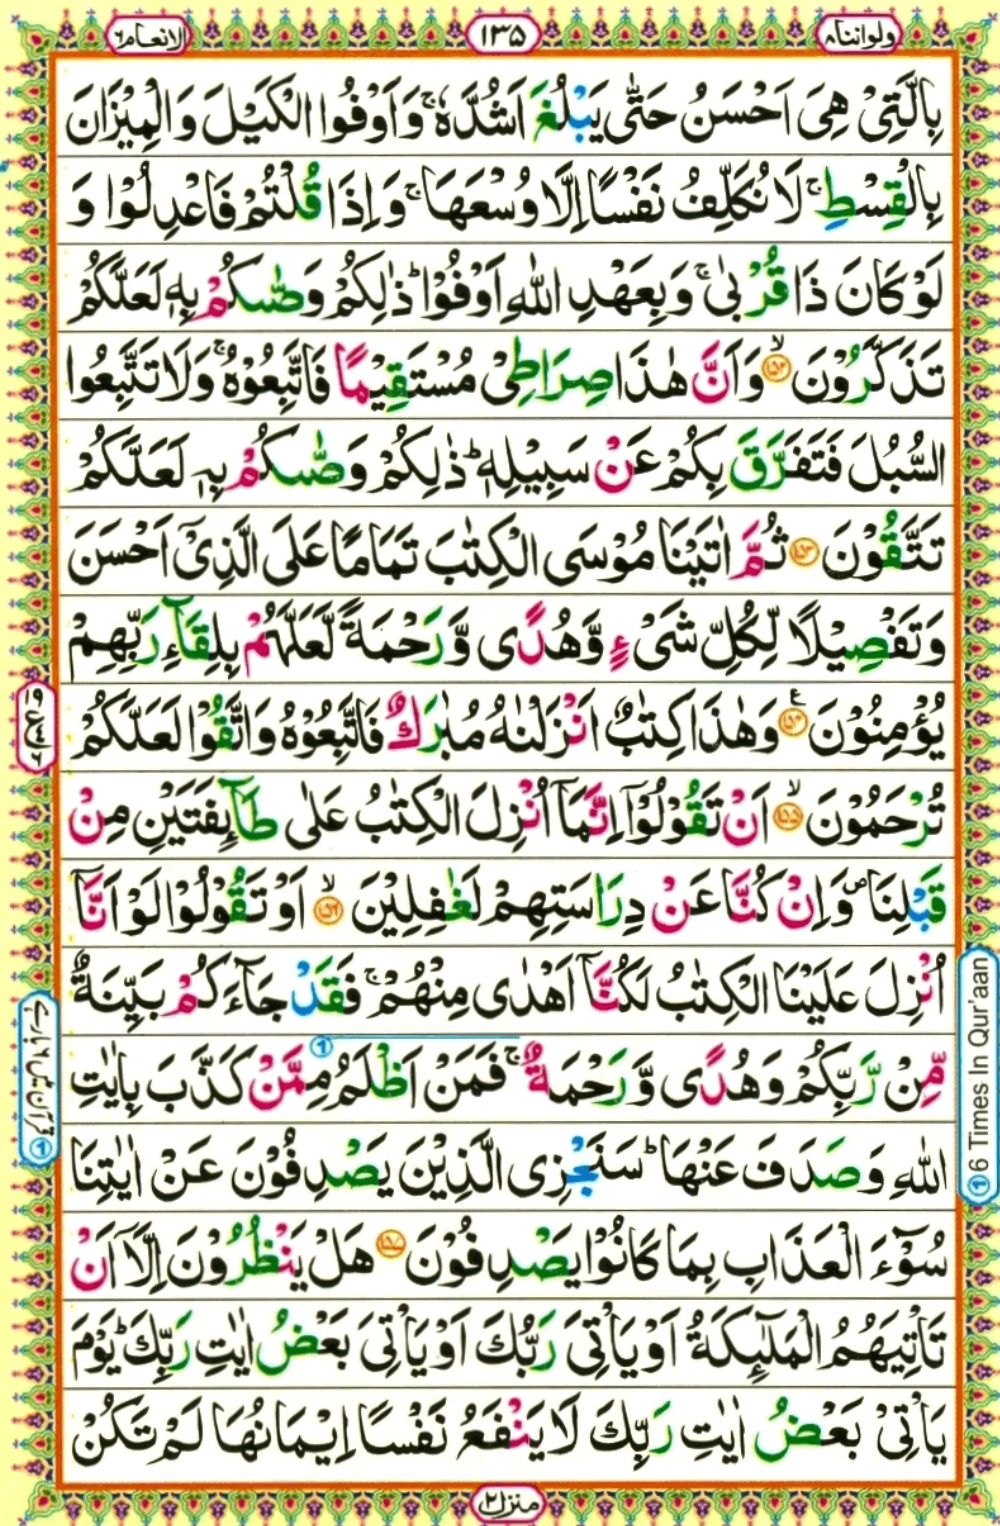 ولواننا۸
۱۳۵
الانعام۶
بِالَّتِیْ هِیَ اَحْسَنُ حَتّٰی یَبْلُغَ اَشُدَّهٗ ۚ وَاَوْفُوا الْكَیْلَ وَالْمِیْزَانَ
بِالْقِسْطِ ۚ لَا نُكَلِّفُ نَفْسًا اِلَّا وُسْعَهَا ۚ وَاِذَا قُلْتُمْ فَاعْدِلُوْا وَ
لَوْ كَانَ ذَا قُرْبٰی ۚ وَبِعَهْدِ اللّٰهِ اَوْفُوْا ؕ ذٰلِكُمْ وَصّٰىكُمْ بِهٖ لَعَلَّكُمْ
تَذَكَّرُوْنَ ۙ۱۵۲ وَاَنَّ هٰذَا صِرَاطِیْ مُسْتَقِیْمًا فَاتَّبِعُوْهُ ۚ وَلَا تَتَّبِعُوا
السُّبُلَ فَتَفَرَّقَ بِكُمْ عَنْ سَبِیْلِهٖ ؕ ذٰلِكُمْ وَصّٰىكُمْ بِهٖ لَعَلَّكُمْ
تَتَّقُوْنَ ۱۵۳ ثُمَّ اٰتَیْنَا مُوْسَی الْكِتٰبَ تَمَامًا عَلَی الَّذِیْۤ اَحْسَنَ
وَتَفْصِیْلًا لِّكُلِّ شَیْءٍ وَّهُدًی وَّرَحْمَةً لَّعَلَّهُمْ بِلِقَآءِ رَبِّهِمْ
یُؤْمِنُوْنَ ۱۵۴ ع وَهٰذَا كِتٰبٌ اَنْزَلْنٰهُ مُبٰرَكٌ فَاتَّبِعُوْهُ وَاتَّقُوْا لَعَلَّكُمْ
تُرْحَمُوْنَ ۙ۱۵۵ اَنْ تَقُوْلُوْۤا اِنَّمَاۤ اُنْزِلَ الْكِتٰبُ عَلٰی طَآىِٕفَتَیْنِ مِنْ
قَبْلِنَا ۪ وَاِنْ كُنَّا عَنْ دِرَاسَتِهِمْ لَغٰفِلِیْنَ ۙ۱۵۶ اَوْ تَقُوْلُوْا لَوْ اَنَّاۤ
اُنْزِلَ عَلَیْنَا الْكِتٰبُ لَكُنَّاۤ اَهْدٰی مِنْهُمْ ۚ فَقَدْ جَآءَكُمْ بَیِّنَةٌ
مِّنْ رَّبِّكُمْ وَهُدًی وَّرَحْمَةٌ ۚ فَمَنْ اَظْلَمُ ① مِمَّنْ كَذَّبَ بِاٰیٰتِ
اللّٰهِ وَصَدَفَ عَنْهَا ؕ سَنَجْزِی الَّذِیْنَ یَصْدِفُوْنَ عَنْ اٰیٰتِنَا
سُوْٓءَ الْعَذَابِ بِمَا كَانُوْا یَصْدِفُوْنَ ۱۵۷ هَلْ یَنْظُرُوْنَ اِلَّاۤ اَنْ
تَاْتِیَهُمُ الْمَلٰٓىِٕكَةُ اَوْ یَاْتِیَ رَبُّكَ اَوْ یَاْتِیَ بَعْضُ اٰیٰتِ رَبِّكَ ؕ یَوْمَ
یَاْتِیْ بَعْضُ اٰیٰتِ رَبِّكَ لَا یَنْفَعُ نَفْسًا اِیْمَانُهَا لَمْ تَكُنْ
① 6 Times In Qur'aan
منزل۲